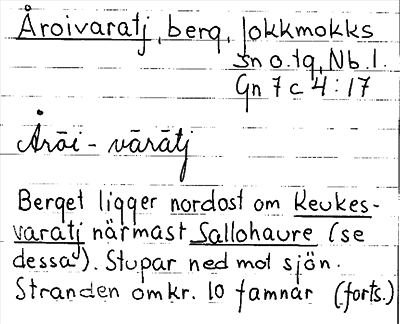 Åroivaratj, berg, Jokkmokks
sn o. tg, Nb. l.
Gn 7 c 4:17
Årāi - vārātj
Berget ligger nordost om Keukes-
varatj närmast Sallohaure (se
dessa). Stupar ned mot sjön.
Stranden omkr. 10 famnar (forts.)